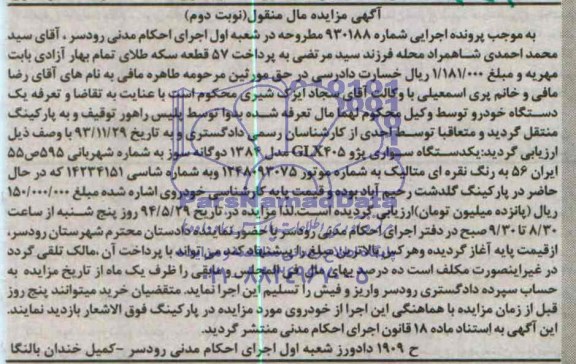 آگهی مزایده مال منقول(نوبت دوم)
به موجب پرونده اجرایی شماره ۹۳۰۱۸۸ مطروحه در شعبه اول اجرای احکام مدنی رودسر ، آقای سید
محمد احمدی شاهمراد محله فرزند سید مرتضی به پرداخت ۵۷ قطعه سکه طلای تمام بهار آزادی بابت
مهریه و مبلغ ۱/۱۸۱/۰۰۰ ریال خسارت دادرسی در حق مورثین مرحومه طاهره مافی به نام های آقای رضا
مافی و خانم پری اسمعیلی با وکالت آقای سجاد ایزک شیری محکوم است با عنایت به تقاضا و تعرفه یک
دستگاه خودرو توسط وکیل محکوم لهما مال تعرفه شده بدوا توسط پلیس راهور توقیف و به پارکینگ
منتقل گردید و متعاقبا توسط احدی از کارشناسان رسمی دادگستری و به تاریخ ۹۳/۱۱/۲۹ با وصف ذیل
ارزیابی گردید:یکدستگاه سواری پژو GLX۴۰۵ مدل ۱۳۸۴ دوگانه سوز به شماره شهربانی ۵۹۵ص۵۵
ایران ۵۶ به رنگ نقره ای متالیک به شماره موتور ۱۲۴۸۰۹۳۰۷۵ وبه شماره شاسی ۱۴۲۳۴۱۵۱ که در حال
حاضر در پارکینگ گلدشت رحیم آباد بوده و قیمت پایه کارشناسی خودروی اشاره شده مبلغ ۱۵۰/۰۰۰/۰۰۰
ریال (پانزده میلیون تومان)ارزیابی گردیده است.لذا مزایده در تاریخ ۹۴/۵/۲۹ روز پنج شنبه از ساعت
۸/۳۰ تا ۹/۳۰ صبح در دفتر اجرای احکام مدنی رودسر با حضور نماینده دادستان محترم شهرستان رودسر،
ازقیمت پایه آغاز گردیده وهرکس بالاترین مبلغ را پیشنهاد کند می تواند با پرداخت آن ،مالک تلقی گردد
در غیراینصورت مکلف است ده درصد بهای مال فی المجلس و مابقی را ظرف یک ماه از تاریخ مزایده به
حساب سپرده دادگستری رودسر واریز و فیش را تسلیم این اجرا نماید. متقضیان خرید میتوانند پنج روز
قبل از زمان مزایده با هماهنگی این اجرا از خودروی مورد مزایده در پارکینگ فوق الاشعار بازدید نمایند.
این آگهی به استناد ماده ۱۸ قانون اجرای احکام مدنی منتشر گردید.
ح ۱۹۰۹ دادورز شعبه اول اجرای احکام مدنی رودسر –کمیل خندان بالنگا
ParsNamadData